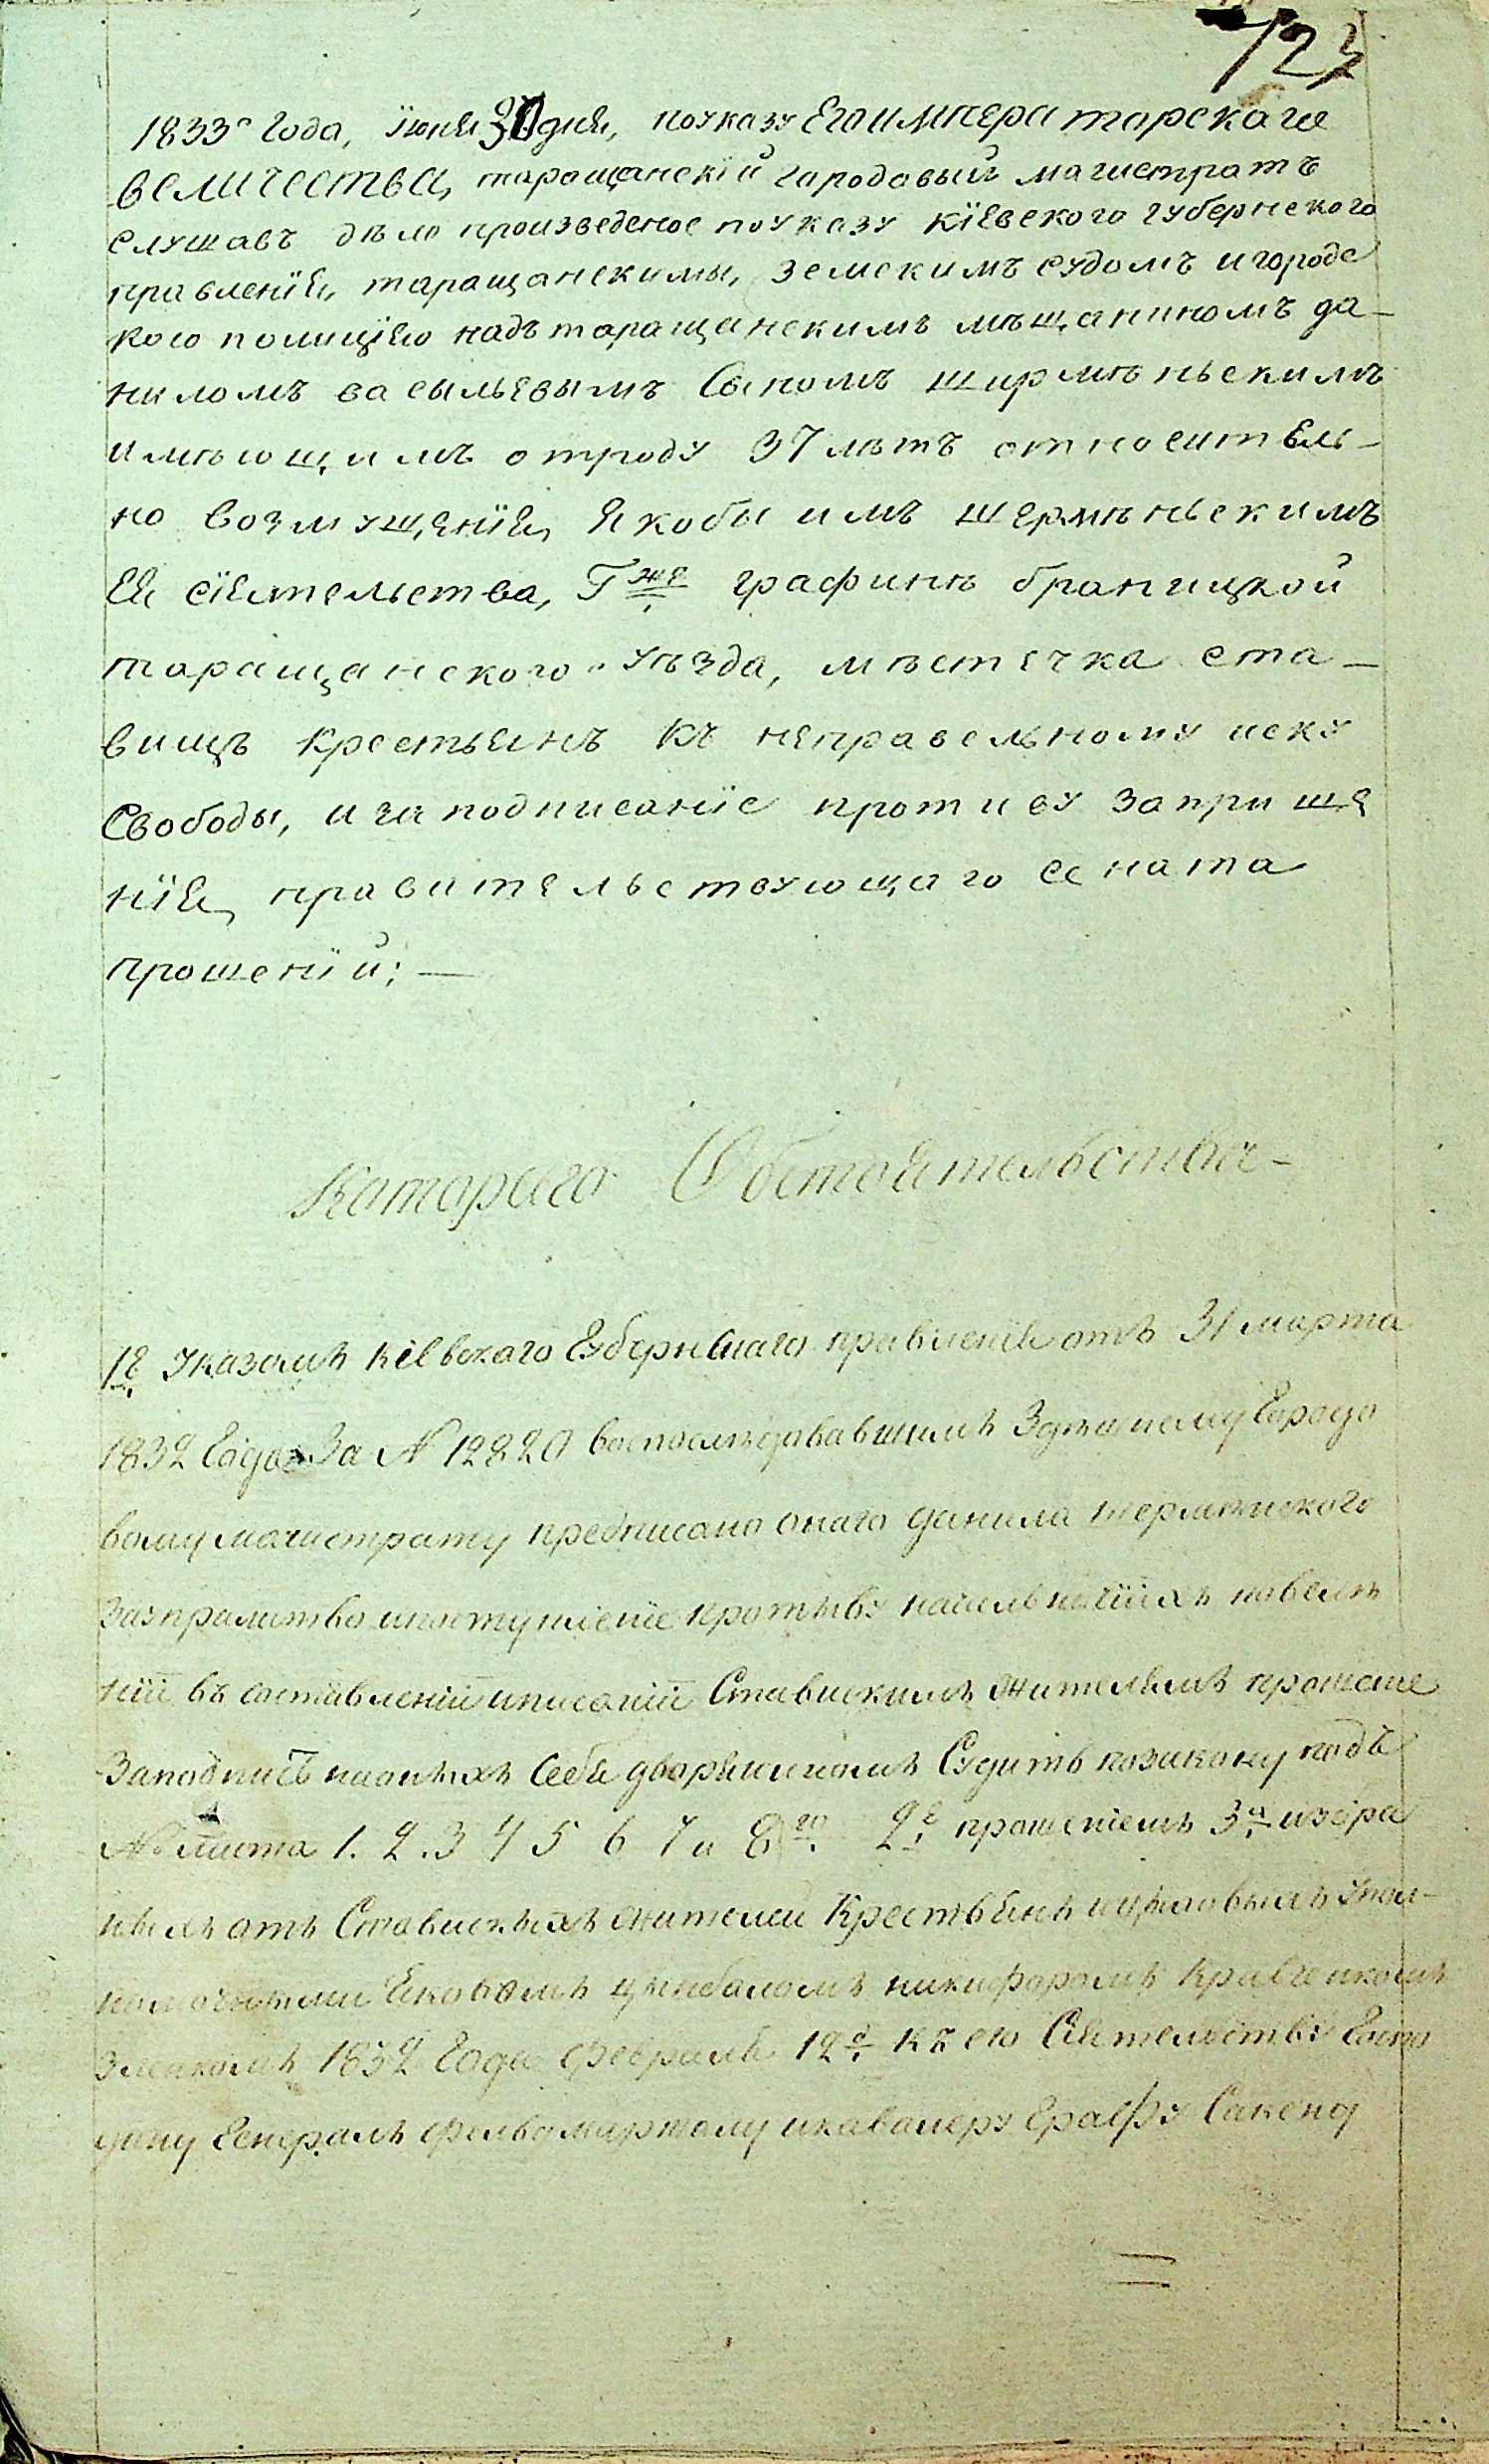 123
1833го года, Июня 30 дня, по указу Его императорскаго
величества, таращанскїй городовый магистратъ
слушавъ дѣло произведеное по указу кїевского губернского
правленїя, таращанскимы, земскимъ судомъ и городс
кою полицїею надъ таращанскимъ мѣщаниномъ да-
ниломъ васыльевымъ Сыномъ ширмѣньскимъ
имѣющимъ отроду 37 лѣтъ относитель-
но возмущенїя, якобы имъ шермѣньскимъ
Ея сїятельства, Гжѣ графинѣ браницкой
таращанского уѣзда, мѣстечка ста-
вищъ крестьянъ къ неправельному иску
Свободы, и за подписанїе противу заприще
нїя, правительствующаго сената
прошенїй; —
Котораго Обстоятельства-
1е Указомъ кїевского Губернскаго правленїя отъ 31 марта
1832 Года За № 12820 воспослѣдовавшимъ Здѣшнему Городо
вому магистрату предписано онаго данила шермѣнского
за упрамство и поступленїе протыву начельничїихъ повелѣ
нїй въ составленїи и писанїи Ставискимъ жителямъ прошенїе
За подписъ на оныхъ Себя дворяниномъ Судить по закону подъ
№ листа 1. 2. 3 4 5 6 7 и 8го. 2е прошенїемъ 3х избра
ныхъ отъ Ставискихъ жителей Крестьянъ упол-
номочными Яковомъ цымбаломъ никифоромъ Кравченкомъ
1832 Года Февраля 12д. къ его Сїятельству Госпо
дину Генералъ фельдмаршалу и кавалеру Графу Сакену